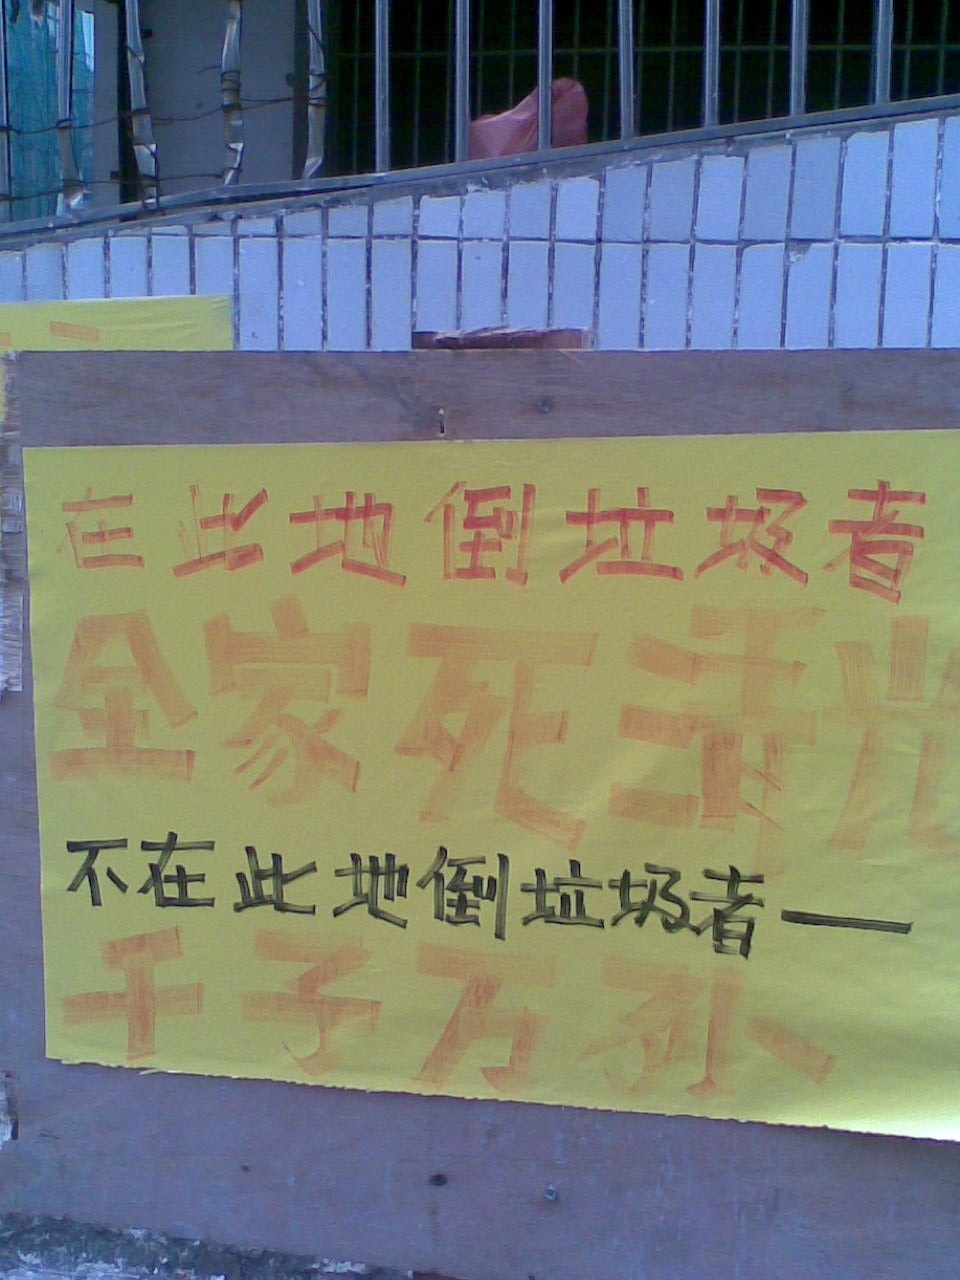 在此地倒垃圾者
全家死清光
不在此地倒垃圾者一
千子万孙